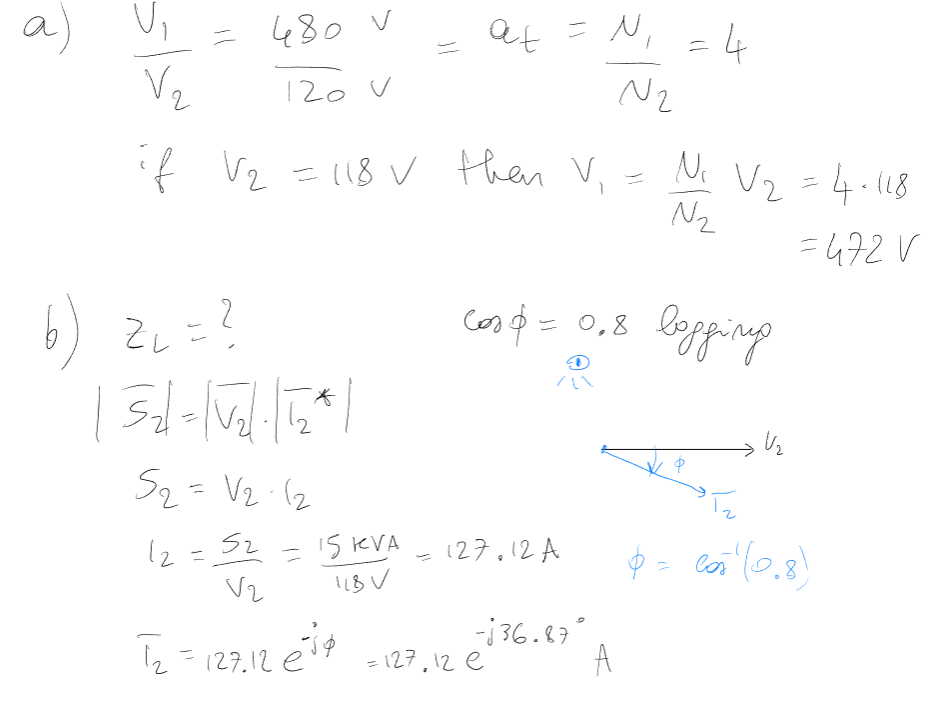 a) V₁/V₂ = 480 V/120 V = at = N₁/N₂ = 4
if V₂ = 118 V then V₁ = N₁/N₂ V₂ = 4·118
= 472 V
b) Z_L = ? cos ϕ = 0.8 lagging
|S̅₂| = |V̅₂|·|I̅₂*|
V₂
ϕ
I̅₂
S₂ = V₂·I₂
I₂ = S₂/V₂ = 15 KVA/118 V = 127.12 A ϕ = cos⁻¹(0.8)
I̅₂ = 127.12 e^(-jϕ) = 127.12 e^(-j36.87°) A